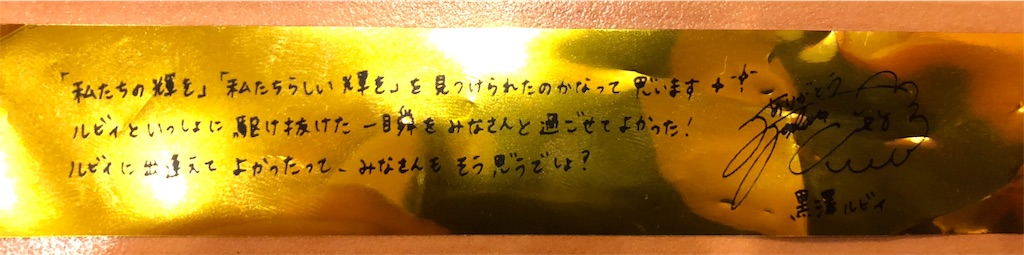 「私たちの輝き」「私たちらしい輝き」を見つけられたのかなって思います
ルビィといっしょに駆け抜けた一瞬をみなさんと過ごせてよかった!
ルビィに出逢えてよかったって、みなさんもそう思うでしょ?
ありがとう
黒澤ルビィ